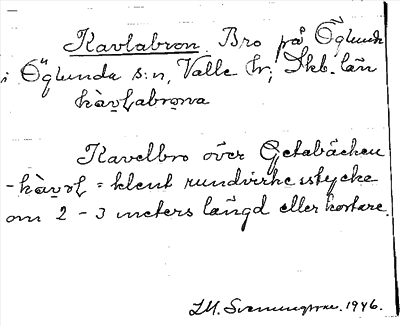 Kavlabron. Bro på Öglunda
i Öglunda s:n, Valle hr; Skb. län
kàvḷabrọna
Kavelbro över Getabäcken
-kàvḷ = klent rundvirkesstycke
om 2 - 3 meters längd eller kortare.
1946.